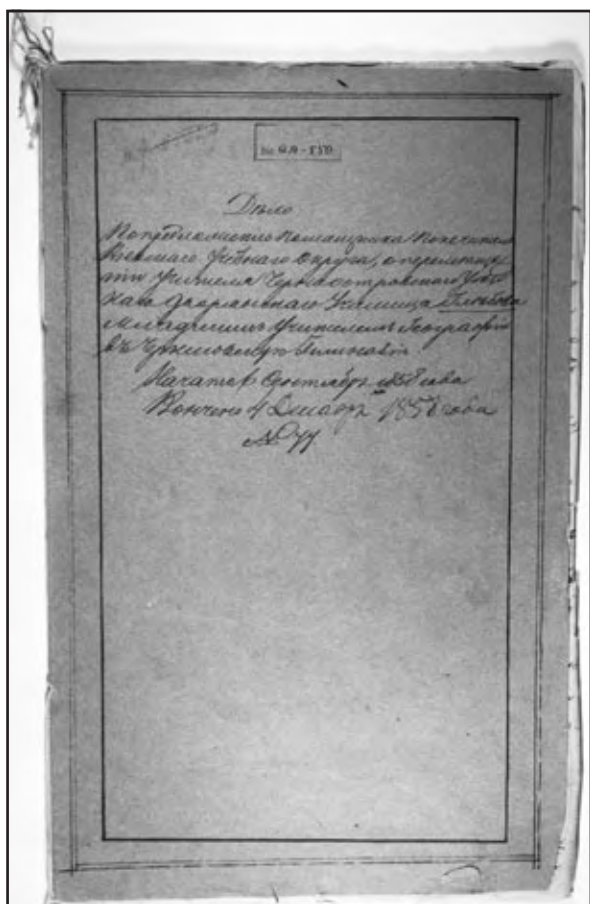 Дѣло
По предложенію Помощника Попечителя
Кіевскаго Учебнаго Округа, о перемѣщеніи
Учителя Черноостровскаго Уѣзд
наго Дворянскаго Училища Глѣбова
Младшимъ Учителемъ Географіи
въ Черниговскую Гимназію.
Начато Сентябрь 1858 года
Кончено 4 Декабря 1858 года
№ 77